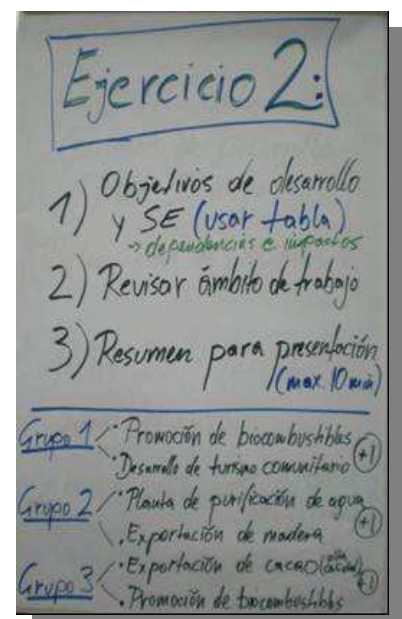 Ejercicio 2:
1) Objetivos de desarrollo
y SE (usar tabla)
→ dependencias e impactos
2) Revisar ámbito de trabajo
3) Resumen para presentación
(max. 10 min)
Grupo 1 • Promoción de biocombustibles
• Desarrollo de turismo comunitario +1
Grupo 2 • Planta de purificación de agua
• Exportación de madera +1
Grupo 3 • Exportación de cacao +1
• Promoción de biocombustibles